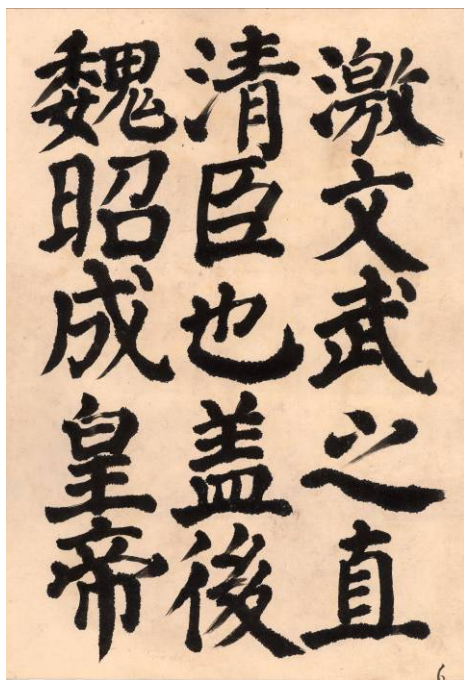 激文武之直
清臣也盖後
魏昭成皇帝
6